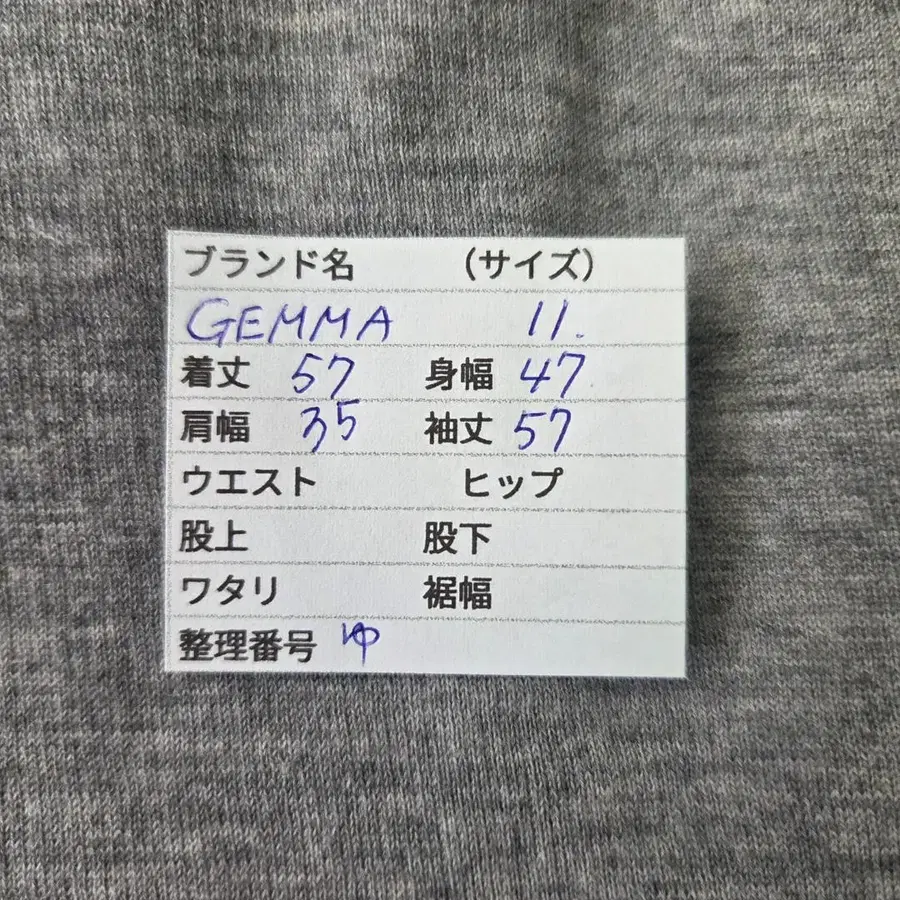 ブランド名 （サイズ）
GEMMA 11.
着丈 57 身幅 47
肩幅 35 袖丈 57
ウエスト ヒップ
股上 股下
ワタリ 裾幅
整理番号 ゆ